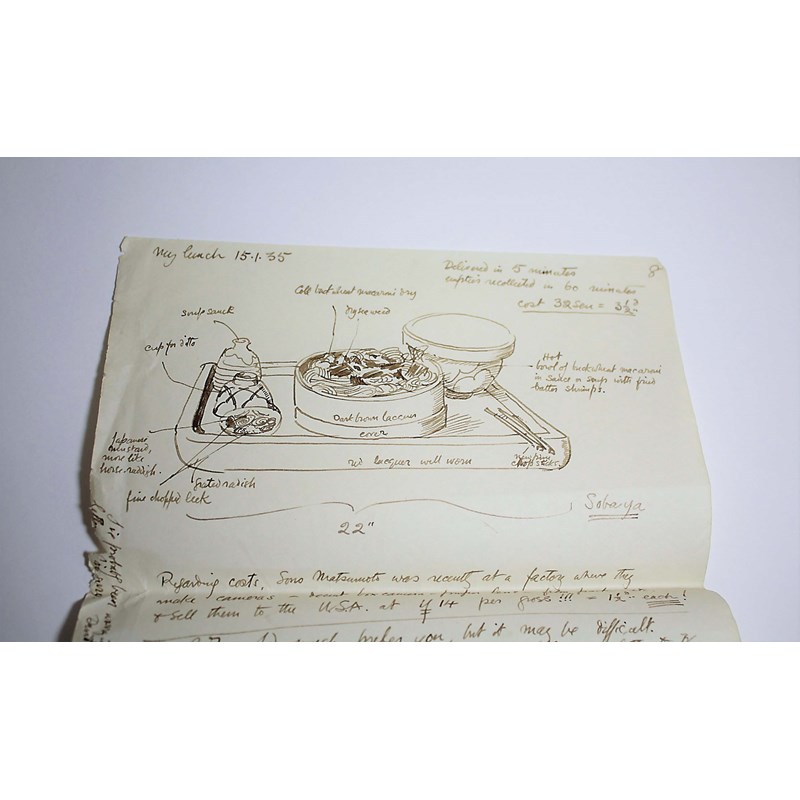 My lunch 15.1.35
8
Delivered in 5 minutes
empties recollected in 60 minutes
cost 32 sen =
Cold buckwheat macaroni dry
dry seaweed
soup sauce
cup for ditto
Hot
bowl of buckwheat macaroni
in sauce n soup with fried
batter shrimps.
Dark brown lacquer
cover
Japanese
mustard,
more like
horse-radish.
new pine
chopsticks.
red lacquer well worn
Grated radish
fine chopped leek
22"
Sobaya
Regarding costs, Sono Matsumoto was recently at a factory where they
make cameras
& sell them to the U.S.A. at ¥14 per gross!!! = each!
prefer you, but it may be difficult.